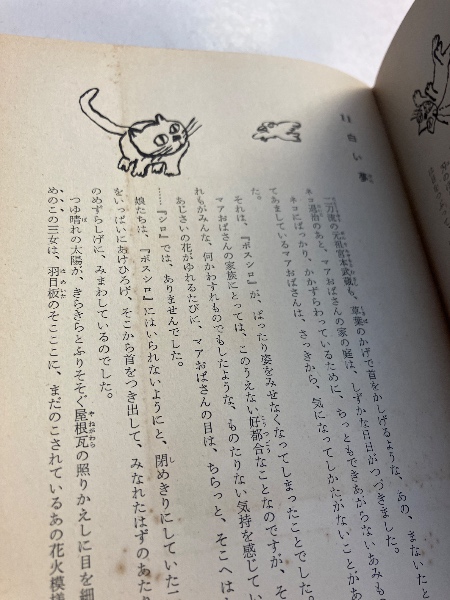 11 白い夢
「二刀流の元祖宮本武蔵も、草葉のかげで首をかしげるような、あの、まないたと
ネコ退治のあと、マアおばさんの家の庭は、しずかな日日がつづきました。
ネコにばっかり、かかずらわっているために、ちっともできあがらないあみも
てあましているマアおばさんは、さっきから、気になってしかたがないことがあ
た。
それは、『ボスシロ』が、ぱったり姿をみせなくなってしまったことでした
マアおばさんの家族にとっては、このうえない好都合なことなのですが、そ
れもがみんな、何かわすれものでもしたような、ものたりない気持を感じてい
あじさいの花がゆれるたびに、マアおばさんの目は、ちらっと、そこへは
……『シロ』では、ありませんでした。
娘たちは、『ボスシロ』にはいられないようにと、閉めきりにしていた
をいっぱいにあけひろげ、そこから首をつき出して、みなれたはずのあたり
のめずらしげに、みまわしているのでした。
つゆ晴れの太陽が、きらきらとふりそそぐ屋根瓦の照りかえしに目を細
めのこの三女は、羽目板のそこここに、まだのこされているあの花火模様